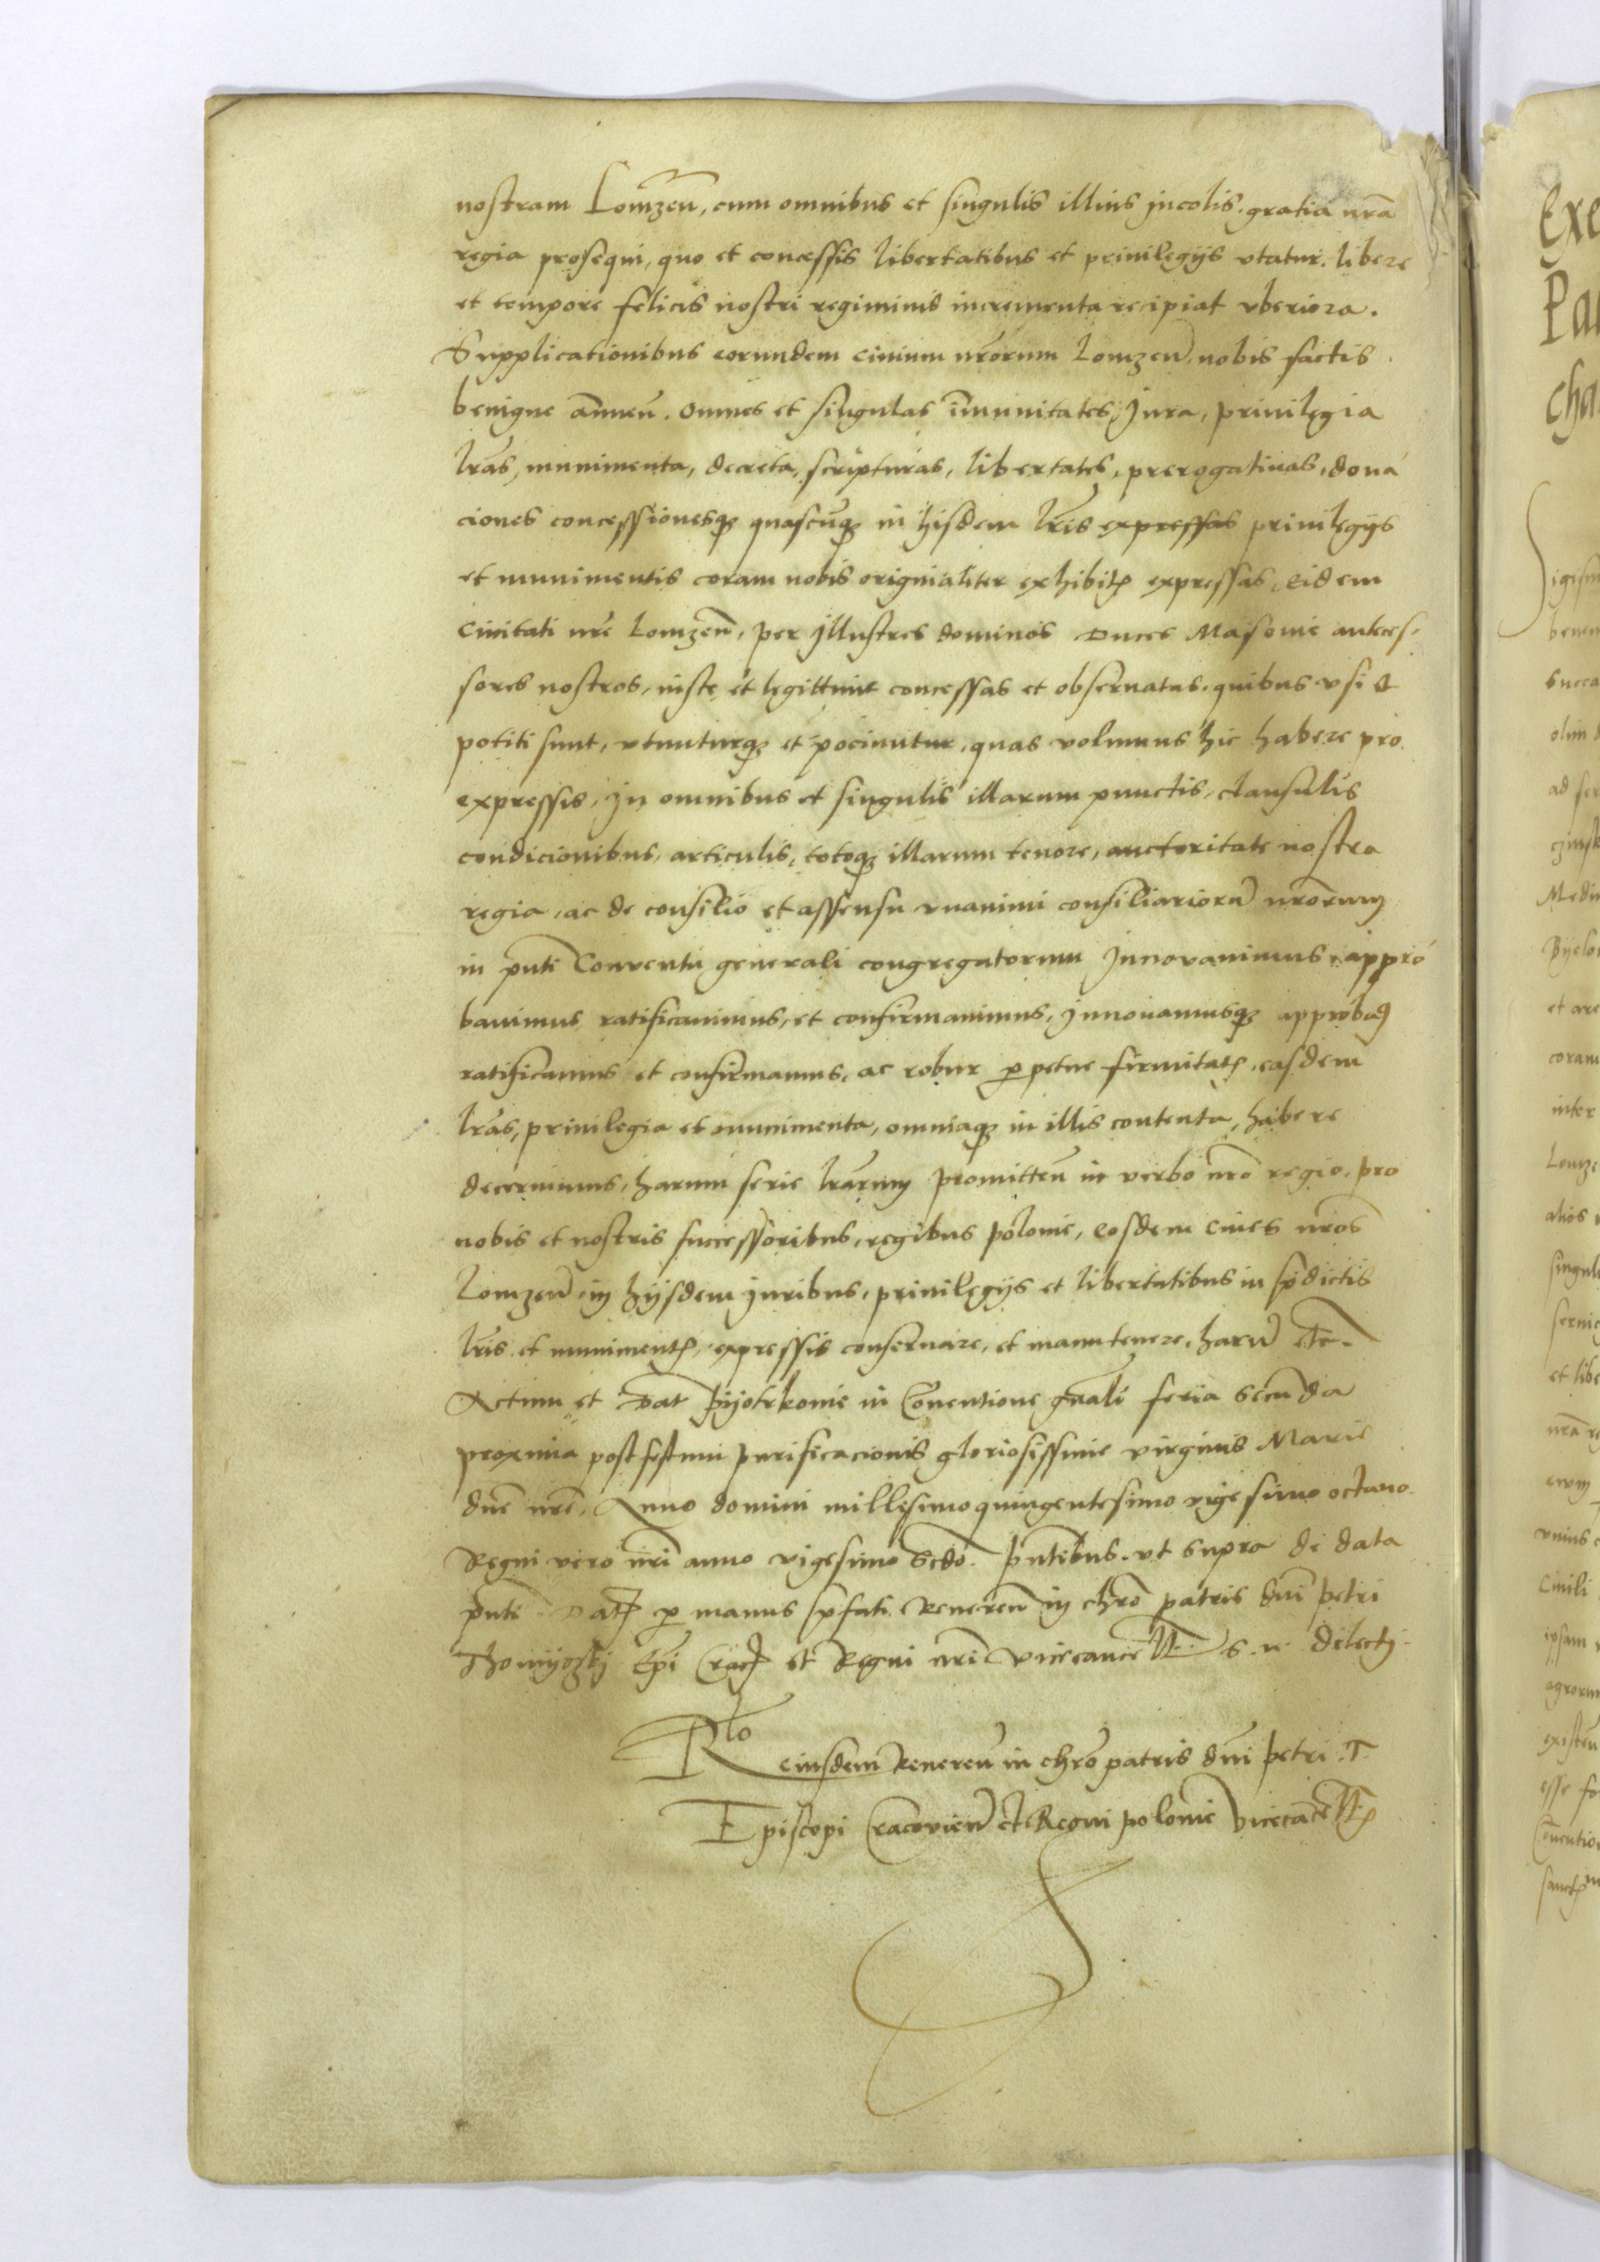 nostram Lomzeñ, cum omnibus et singulis illius incolis, gratia nrã
regia prosequi, quo et concessis libertatibus et priuilegijs vtatur libere
et tempore felicis nostri regiminis incrementa recipiat vberiora.
Supplicationibus eorundem ciuium nrõrum Lomzeñ nobis factis
benigne ãnueñ. omnes et singulas ĩmunitates, Jura, priuilegia
lrãs, munimenta, decreta, scripturas, libertates, prerogatiuas, dona
ciones concessionesq; quascũq; in hisdem lrĩs expressas priuilegijs
et munimentis coram nobis originaliter exhibitꝭ expressas, eidem
Ciuitati nrẽ Lomzeñ, per Jllustres dominos Duces Masouie anteces-
sores nostros, iuste et legittime concessas et obseruatas, quibus vsi &
potiti sunt, vtunturq; et pociuntur, quas volumus hic habere pro
expressis, Jn omnibus et singulis illarum punctis, clausulis
condicionibus, articulis, totoq; illarum tenore, auctoritate nostra
regia, ac de consilio et assensu vnanimi consiliariorũ nrõrum
in pñti Conuentu generali congregatorum Jnnovauimus, appro
bauimus ratificauimus, et confirmauimus, Jnnouamusq; approbaꝯ
ratificamus et confirmamus, ac robur ꝑpetue firmitatꝭ, easdem
lrãs, priuilegia et munimenta, omniaq; in illis contenta, habere
decernimus, harum serie lrãrum promitteñ in verbo nrõ regio, pro
nobis et nostris successoribus, regibus polonie, eosdem ciues nrõs
Lomzeñ in hijsdem juribus, priuilegijs et libertatibus in sp̃dictis
lrĩs et munimentꝭ, expressis conseruare, et manutenere, harũ etc.
Actum et Dat Pijotrkouie in Conuentione gñali feria secunda
proxima post festum purificacionis gloriosissime virginis Marie
dñe nrẽ, Anno domini millesimo quingentesimo vigesimo octauo
Regni vero nrĩ anno vigesimo Scdõ. p̃ntibus vt supra de data
pñti. Datꝭ ꝑ manus sp̃fati Reuereñ in chrõ patris dñi petri
Thomijczkj Epĩ Cracꝭ et Regni nrĩ vicecancẽll s. n. dilectj.
Rlõ
eiusdem Reuereñ in chrõ patris dñi petri .T.
Episcopi Cracovieñ et Regni polonie vicecancẽllꝭ